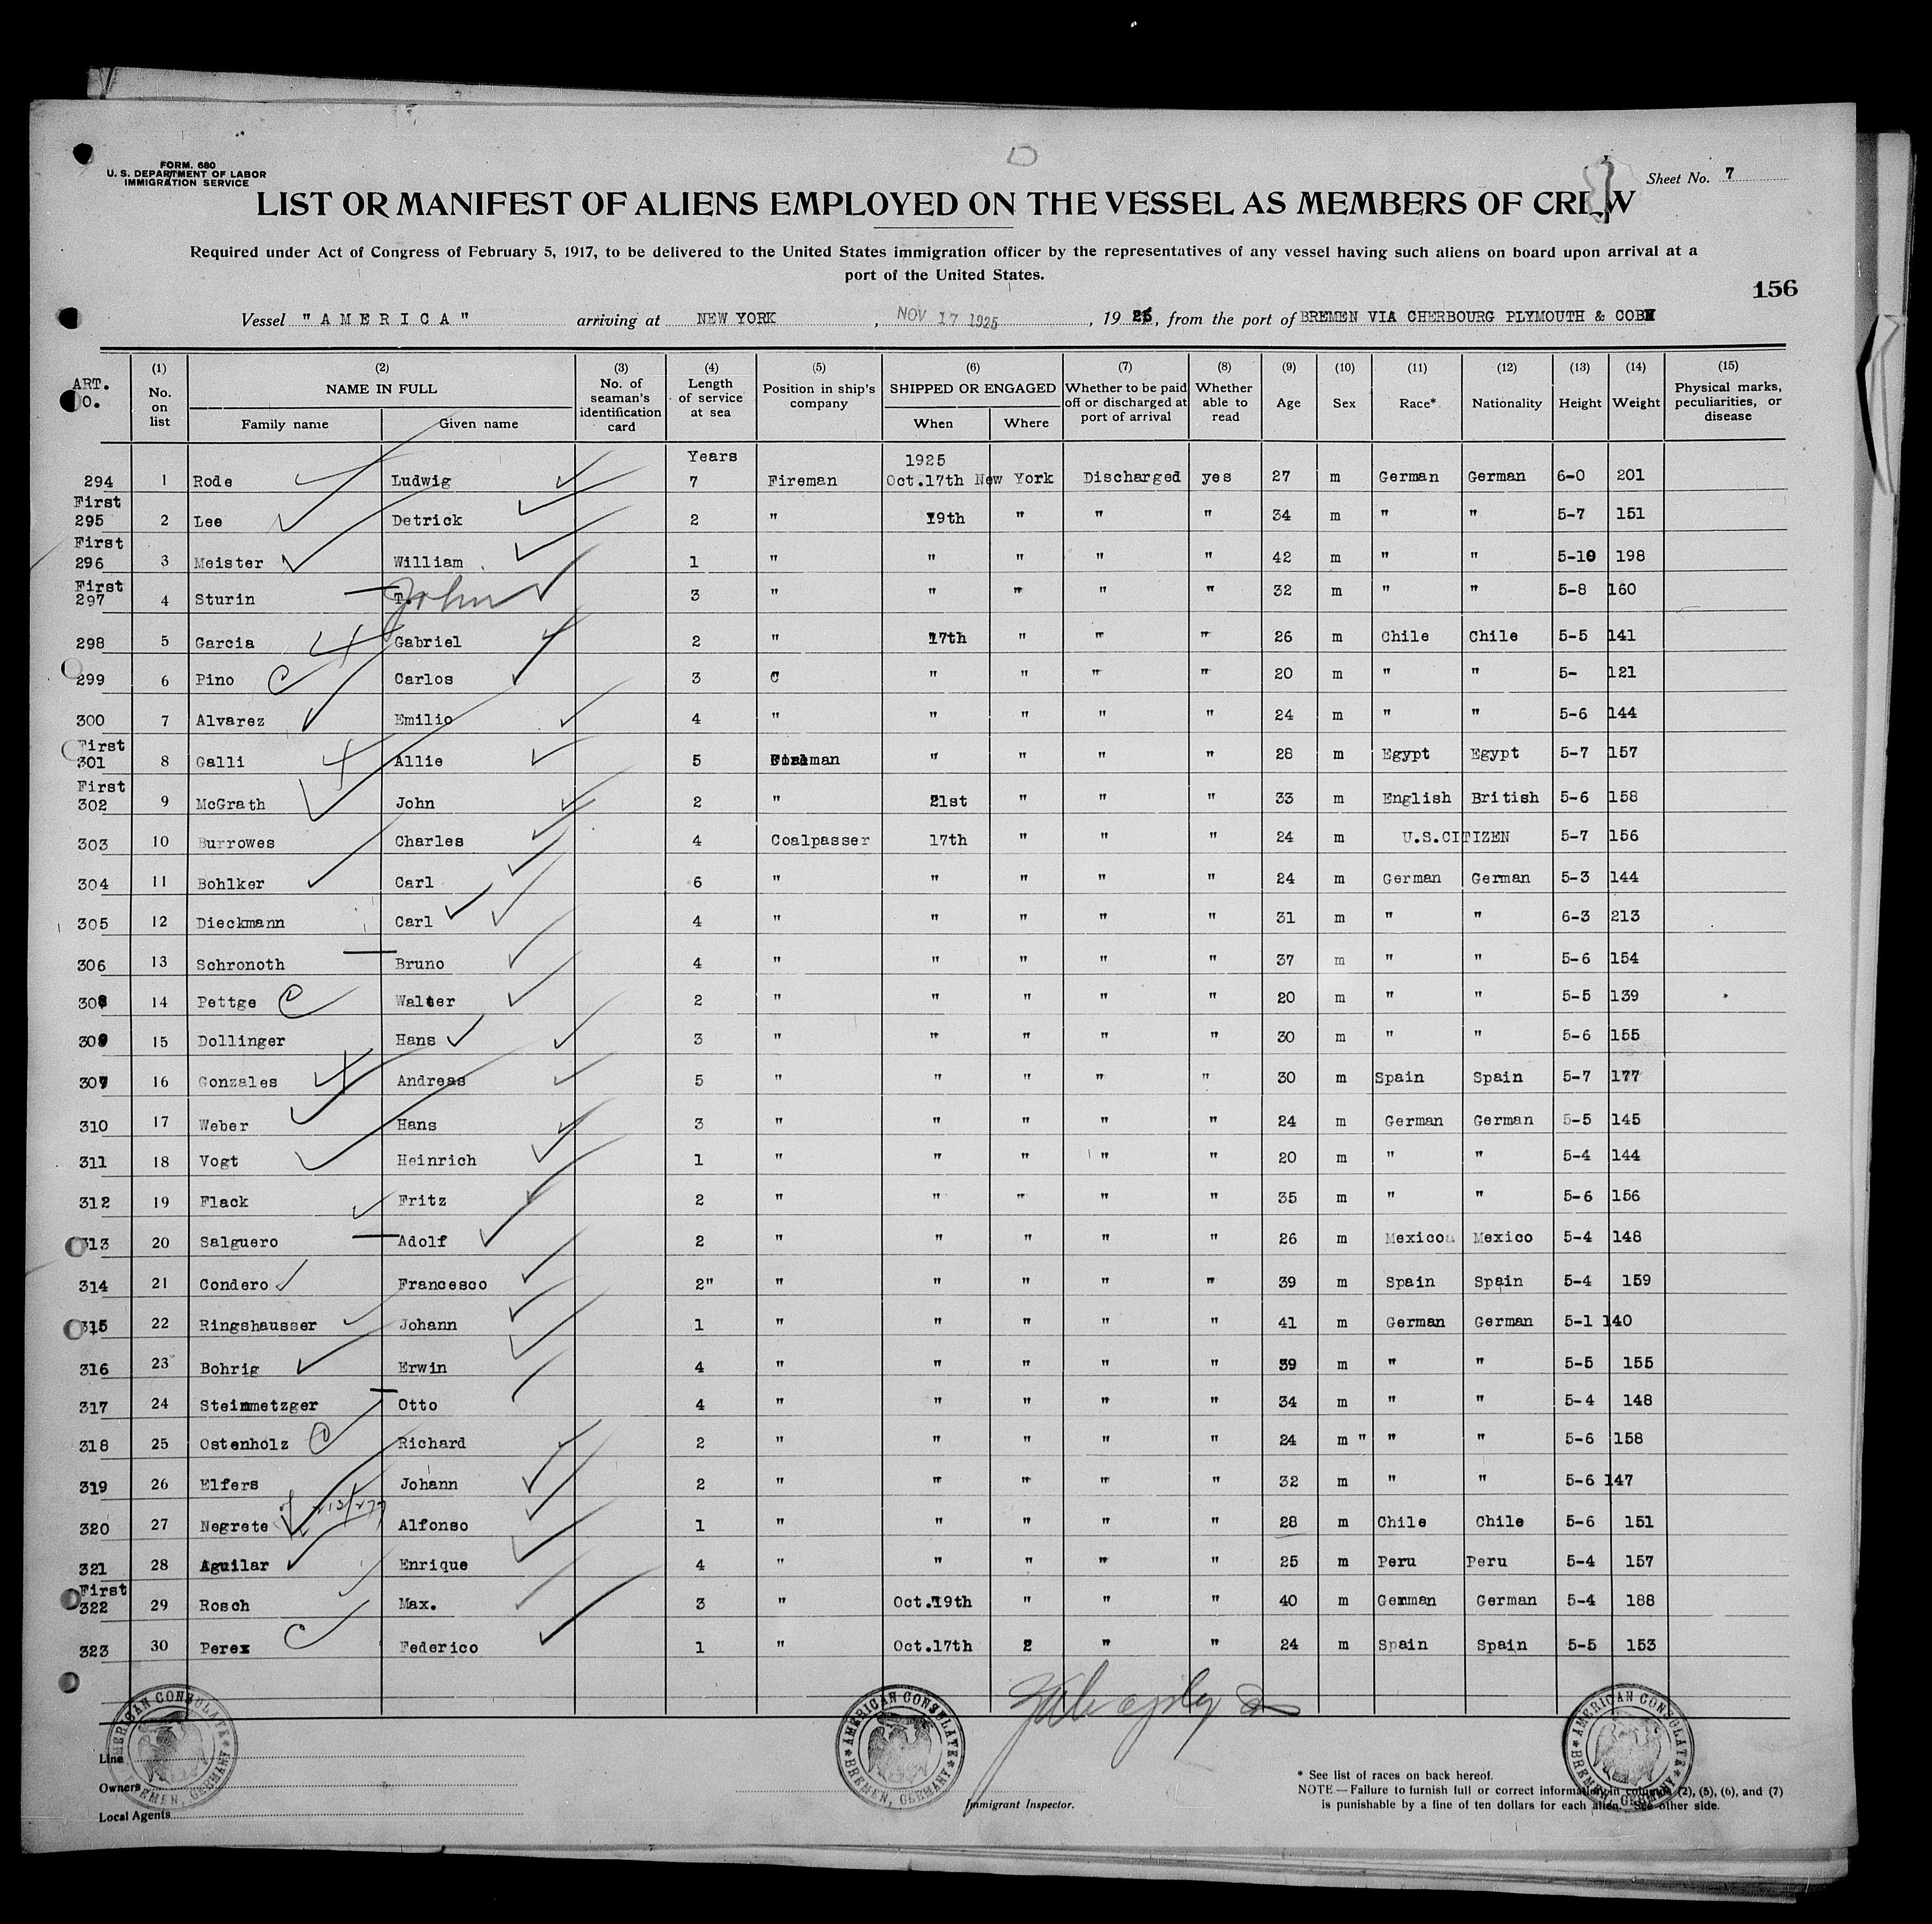 FORM. 680
U. S. DEPARTMENT OF LABOR
IMMIGRATION SERVICE
Sheet No. 7
LIST OR MANIFEST OF ALIENS EMPLOYED ON THE VESSEL AS MEMBERS OF CREW
Required under Act of Congress of February 5, 1917, to be delivered to the United States immigration officer by the representatives of any vessel having such aliens on board upon arrival at a
port of the United States.
156
Vessel "AMERICA" arriving at NEW YORK, NOV 17 1925, 1925, from the port of BREMEN VIA CHERBOURG PLYMOUTH & COBH
ART. (1) (2) (3) (4) (5) (6) (7) (8) (9) (10) (11) (12) (13) (14) (15)
O. No. on list NAME IN FULL No. of seaman's identification card Length of service at sea Position in ship's company SHIPPED OR ENGAGED Whether to be paid off or discharged at port of arrival Whether able to read Age Sex Race* Nationality Height Weight Physical marks, peculiarities, or disease
Family name Given name When Where
Years 1925
294 1 Rode Ludwig 7 Fireman Oct.17th New York Discharged yes 27 m German German 6-0 201
First
295 2 Lee Detrick 2 " 19th " " " 34 m " " 5-7 151
First
296 3 Meister William 1 " " " " " 42 m " " 5-10 198
First
297 4 Sturin T. John 3 " " " " " 32 m " " 5-8 160
298 5 Garcia Gabriel 2 " 17th " " " 26 m Chile Chile 5-5 141
299 6 Pino Carlos 3 " " " " " 20 m " " 5- 121
300 7 Alvarez Emilio 4 " " " " " 24 m " " 5-6 144
First
301 8 Galli Allie 5 Fireman " " " " 28 m Egypt Egypt 5-7 157
First
302 9 McGrath John 2 " 21st " " " 33 m English British 5-6 158
303 10 Burrowes Charles 4 Coalpasser 17th " " " 24 m U.S.CITIZEN 5-7 156
304 11 Bohlker Carl 6 " " " " " 24 m German German 5-3 144
305 12 Dieckmann Carl 4 " " " " " 31 m " " 6-3 213
306 13 Schronoth Bruno 4 " " " " " 37 m " " 5-6 154
308 14 Pettge Walter 2 " " " " " 20 m " " 5-5 139
309 15 Dollinger Hans 3 " " " " " 30 m " " 5-6 155
307 16 Gonzales Andreas 5 " " " " " 30 m Spain Spain 5-7 177
310 17 Weber Hans 3 " " " " " 24 m German German 5-5 145
311 18 Vogt Heinrich 1 " " " " " 20 m " " 5-4 144
312 19 Flack Fritz 2 " " " " " 35 m " " 5-6 156
313 20 Salguero Adolf 2 " " " " " 26 m Mexico Mexico 5-4 148
314 21 Condero Francesco 2" " " " " " 39 m Spain Spain 5-4 159
315 22 Ringshausser Johann 1 " " " " " 41 m German German 5-1 140
316 23 Bohrig Erwin 4 " " " " " 39 m " " 5-5 155
317 24 Steinmetzger Otto 4 " " " " " 34 m " " 5-4 148
318 25 Ostenholz Richard 2 " " " " " 24 m " " " 5-6 158
319 26 Elfers Johann 2 " " " " " 32 m " " 5-6 147
320 27 Negrete Alfonso 1 " " " " " 28 m Chile Chile 5-6 151
321 28 Aguilar Enrique 4 " " " " " 25 m Peru Peru 5-4 157
First
322 29 Rosch Max. 3 " Oct.19th " " " 40 m German German 5-4 188
323 30 Perez Federico 1 " Oct.17th " " " 24 m Spain Spain 5-5 153
AMERICAN CONSULATE BREMEN, GERMANY
AMERICAN CONSULATE BREMEN, GERMANY
AMERICAN CONSULATE BREMEN, GERMANY
Line
Owners
Local Agents
Immigrant Inspector.
* See list of races on back hereof.
NOTE—Failure to furnish full or correct information in columns (2), (5), (6), and (7)
is punishable by a fine of ten dollars for each alien. See other side.